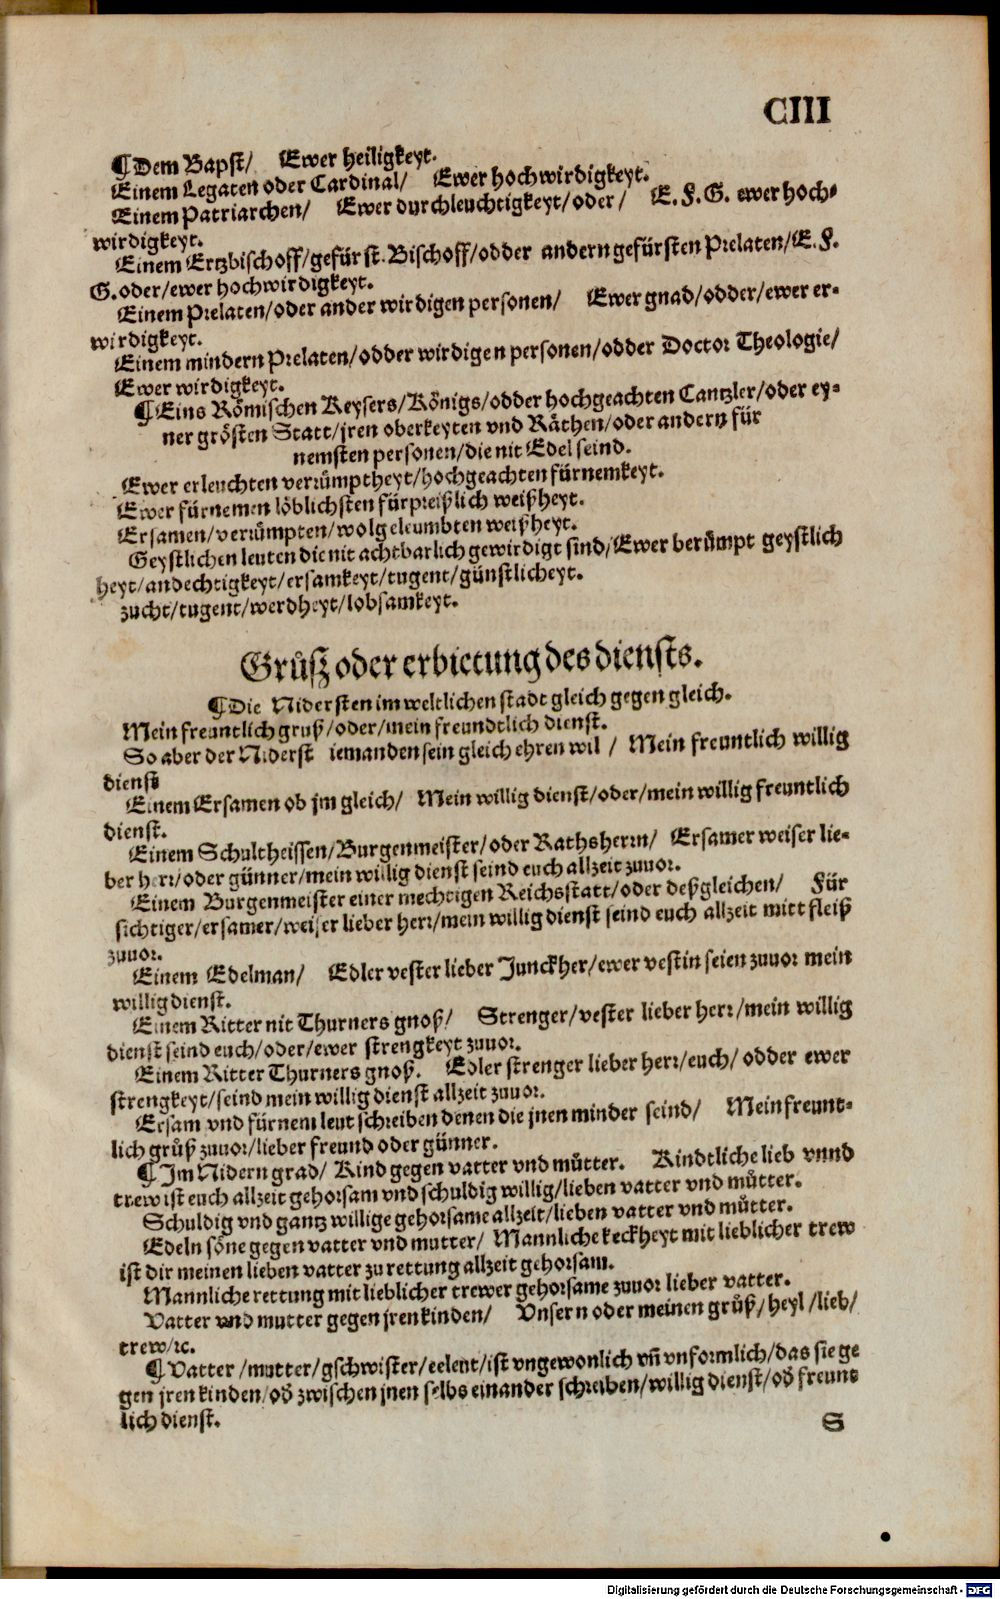 CIII
¶Dem Bapst/ Ewer heiligkeyt.
Einem Legaten oder Cardinal/ Ewer hochwirdigkeyt.
Einem Patriarchen/ Ewer durchleuchtigkeyt/oder/ E. F. G. ewer hoch-
wirdigkeyt.
Einem Ertzbischoff/gefürst. Bischoff/odder andern gefürsten Prelaten/E. F.
G. oder/ewer hochwirdigkeyt.
Einem Prelaten/oder ander wirdigen personen/ Ewer gnad/odder/ewer er-
wirdigkeyt.
Einem mindern Prelaten/odder wirdigen personen/odder Doctor Theologie/
Ewer wirdigkeyt.
¶Eins Römischen Keysers/Königs/odder hochgeachten Cantzler/oder ey-
ner grösten Statt/jren oberkeyten vnd Räthen/oder andern für
nemsten personen/die nit Edel seind.
Ewer erleuchten verrůmptheyt/hochgeachten fürnemkeyt.
Ewer fürnemen löblichsten fürpreißlich weißheyt.
Ersamen/verrůmpten/wolgeleumbten weißheyt.
Geystlichen leuten die nit achtbarlich gewirdigt sind/Ewer berůmpt geystlich
heyt/andechtigkeyt/ersamkeyt/tugent/günstlicheyt.
zucht/tugent/werdheyt/lobsamkeyt.
Grůß oder erbietung des diensts.
¶Die Nidersten im weltlichen stadt gleich gegen gleich.
Mein freuntlich gruß/oder/mein freundtlich dienst.
So aber der Niderst iemanden sein gleich ehren wil/ Mein freuntlich willig
dienst
Einem Ersamen ob jm gleich/ Mein willig dienst/oder/mein willig freuntlich
dienst.
Einem Schultheissen/Burgenmeister/oder Rathsherrn/ Ersamer weiser lie-
ber herr/oder günner/mein willig dienst seind euch allzeit zuuor.
Einem Burgenmeister einer mechtigen Reichsstatt/oder deßgleichen/ Für
sichtiger/ersamer/weiser lieber herr/mein willig dienst seind euch allzeit mitt fleiß
zuuor.
Einem Edelman/ Edler vester lieber Junckher/ewer vestin seien zuuor mein
willig dienst.
Einem Ritter nit Thurners gnoß/ Strenger/vester lieber herr/mein willig
dienst seind euch/oder/ewer strengkeyt zuuor.
Einem Ritter Thurners gnoß. Edler strenger lieber herr/euch/odder ewer
strengkeyt/seind mein willig dienst allzeit zuuor.
Ersam vnd fürnem leut schreiben denen die jnen minder seind/ Mein freunt-
lich grůß zuuor/lieber freund oder günner.
¶Im Nidern grad/ Kind gegen vatter vnd můtter. Kindtliche lieb vnnd
trew ist euch allzeit gehorsam vnd schuldig willig/lieben vatter vnd můtter.
Schuldig vnd gantz willige gehorsame allzeit/lieben vatter vnd můtter.
Edeln söne gegen vatter vnd mutter/ Mannliche keckheyt mit lieblicher trew
ist dir meinen lieben vatter zu rettung allzeit gehorsam.
Mannliche rettung mit lieblicher trewer gehorsame zuuor lieber vatter.
Vatter vnd mutter gegen jren kinden/ Vnsern oder meinen grůß/heyl/lieb/
trew/ꝛc.
¶Vatter/mutter/gschwister/eelent/ist vngewonlich vñ vnformlich/das sie ge
gen jren kinden/od̕ zwischen jnen selbs einander schreiben/willig dienst/od̕ freunt
lich dienst.
S
Digitalisierung gefördert durch die Deutsche Forschungsgemeinschaft - DFG